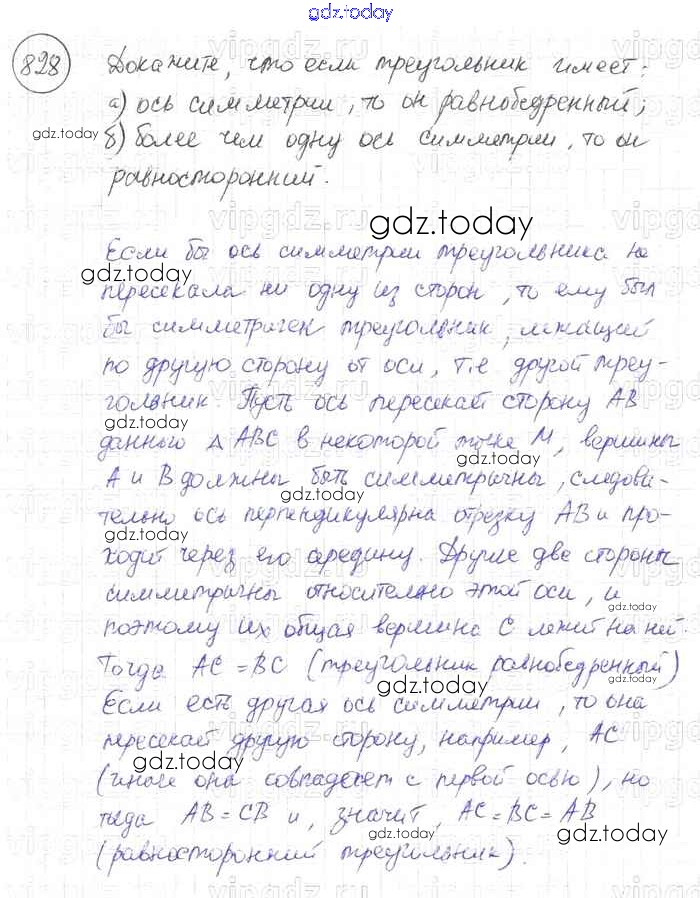 gdz.today
828 Докажите, что если треугольник имеет:
а) ось симметрии, то он равнобедренный;
gdz.today б) более чем одну ось симметрии, то он
равносторонний.
gdz.today
Если бы ось симметрии треугольника не
gdz.today
пересекала ни одну из сторон, то ему был
бы симметричен треугольник, лежащий
по другую сторону от оси, т.е другой треу-
гольник. Пусть ось пересекает сторону АВ
данного △ АВС в некоторой точке М, вершины
gdz.today
А и В должны быть симметричны, следова-
gdz.today
тельно ось перпендикулярна отрезку АВ и про-
gdz.today
ходит через его середину. Другие две стороны
симметричны относительно этой оси, и
gdz.today
поэтому их общая вершина С лежит на ней.
Тогда АС = ВС (треугольник равнобедренный)
gdz.today
Если есть другая ось симметрии, то она
пересекает другую сторону, например, АС
gdz.today
(иначе она совпадает с первой осью), но
тогда АВ = СВ и, значит, АС = ВС = АВ
gdz.today gdz.today
(равносторонний треугольник).